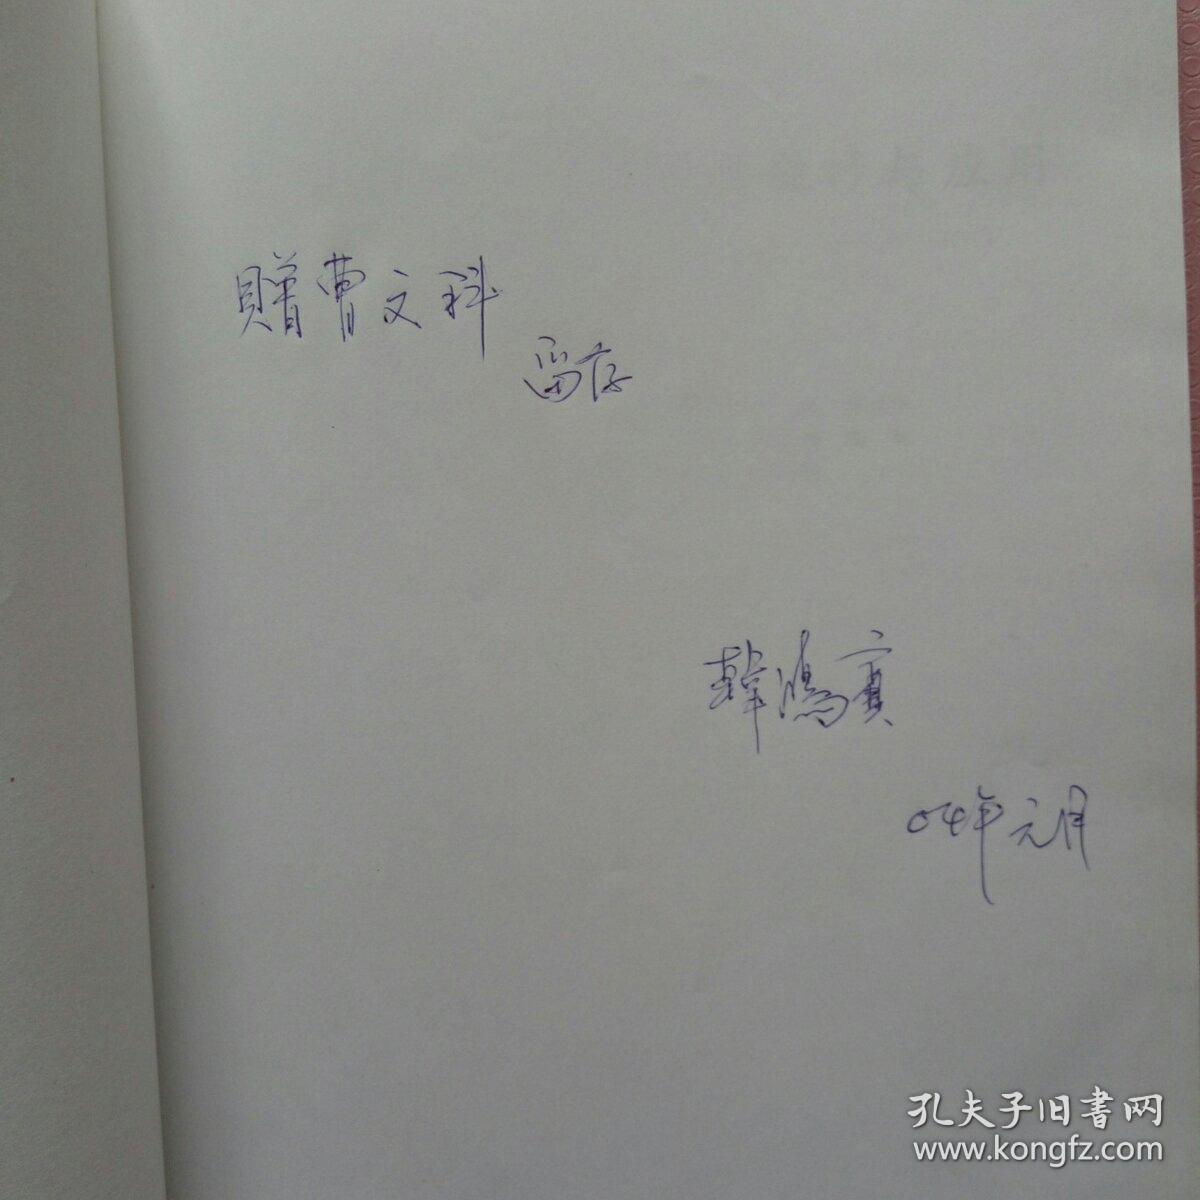 贈曹文科
留存
韓鴻賓
04年元月
孔夫子旧書网
www.kongfz.com